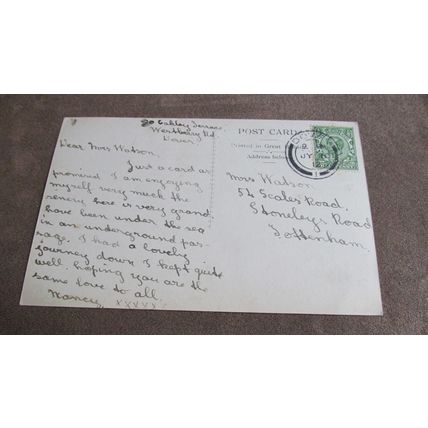 20 Oakley Terrace
Westbury Rd.
Dover
Dear Mrs Watson,
Just a card as
promised I am enjoying
myself very much the
senery here is very grand
have been under the sea
in an underground pas-
sage. I had a lovely
journey down I kept quite
well. hoping you are the
same love to all.
Nancy xxxxx
POST CARD
Printed in Great
Address below
DOVER
JY
1
Mrs Watson
54 Scales Road.
Stoneleys Road
Tottenham.